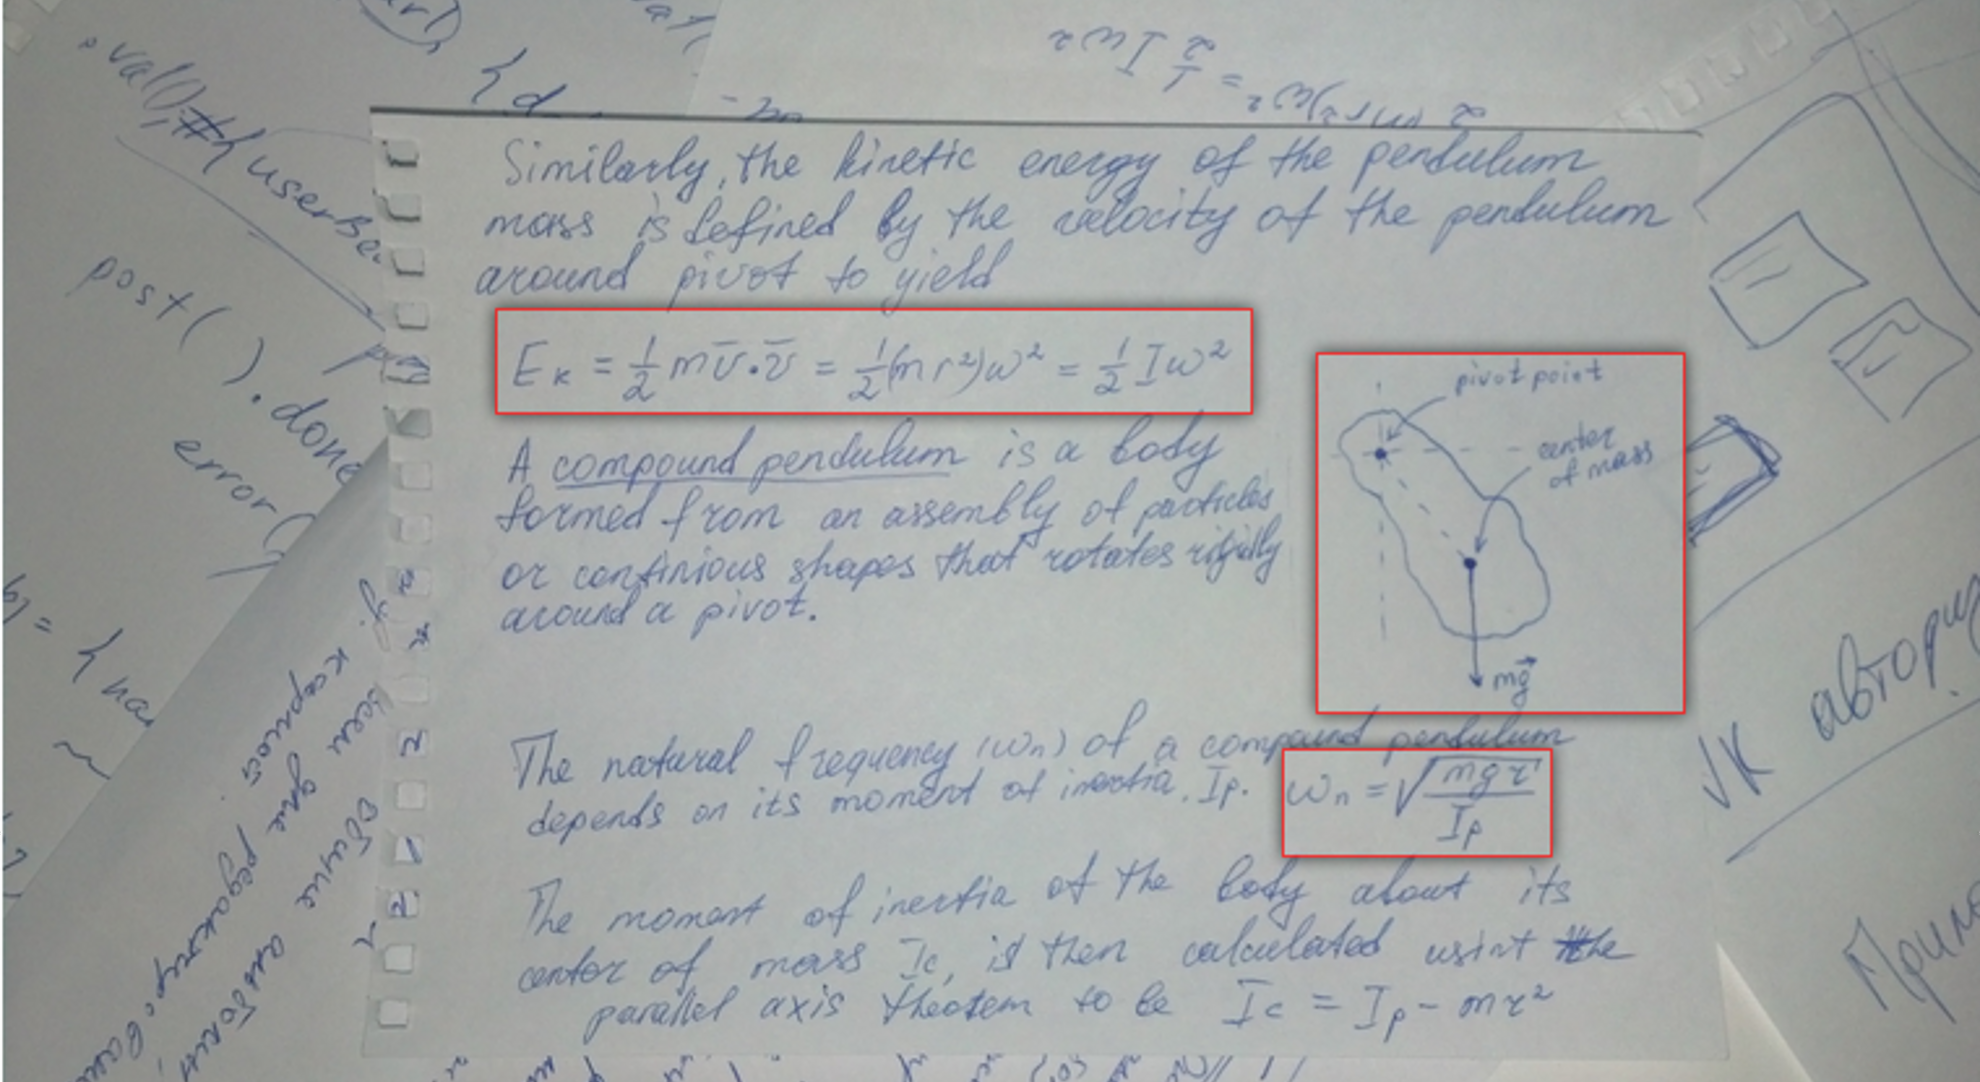 .val(),#{userSe
{d
= 1/2 Iω²
Similarly, the kinetic energy of the pendulum
mass is defined by the velocity of the pendulum
around pivot to yield
E_K = 1/2 m v̄·v̄ = 1/2 (mr²)ω² = 1/2 Iω²
pivot point
center
of mass
mg⃗
A compound pendulum is a body
formed from an assembly of particles
or continious shapes that rotates rigidly
around a pivot.
The natural frequency (ωn) of a compound pendulum
depends on its moment of inertia, Ip. ωn = √(mgr/Ip)
The moment of inertia of the body about its
center of mass Ic, is then calculated usint the
parallel axis theotem to be Ic = Ip - mr²
post( ).done
error(
= {na
VK авториз